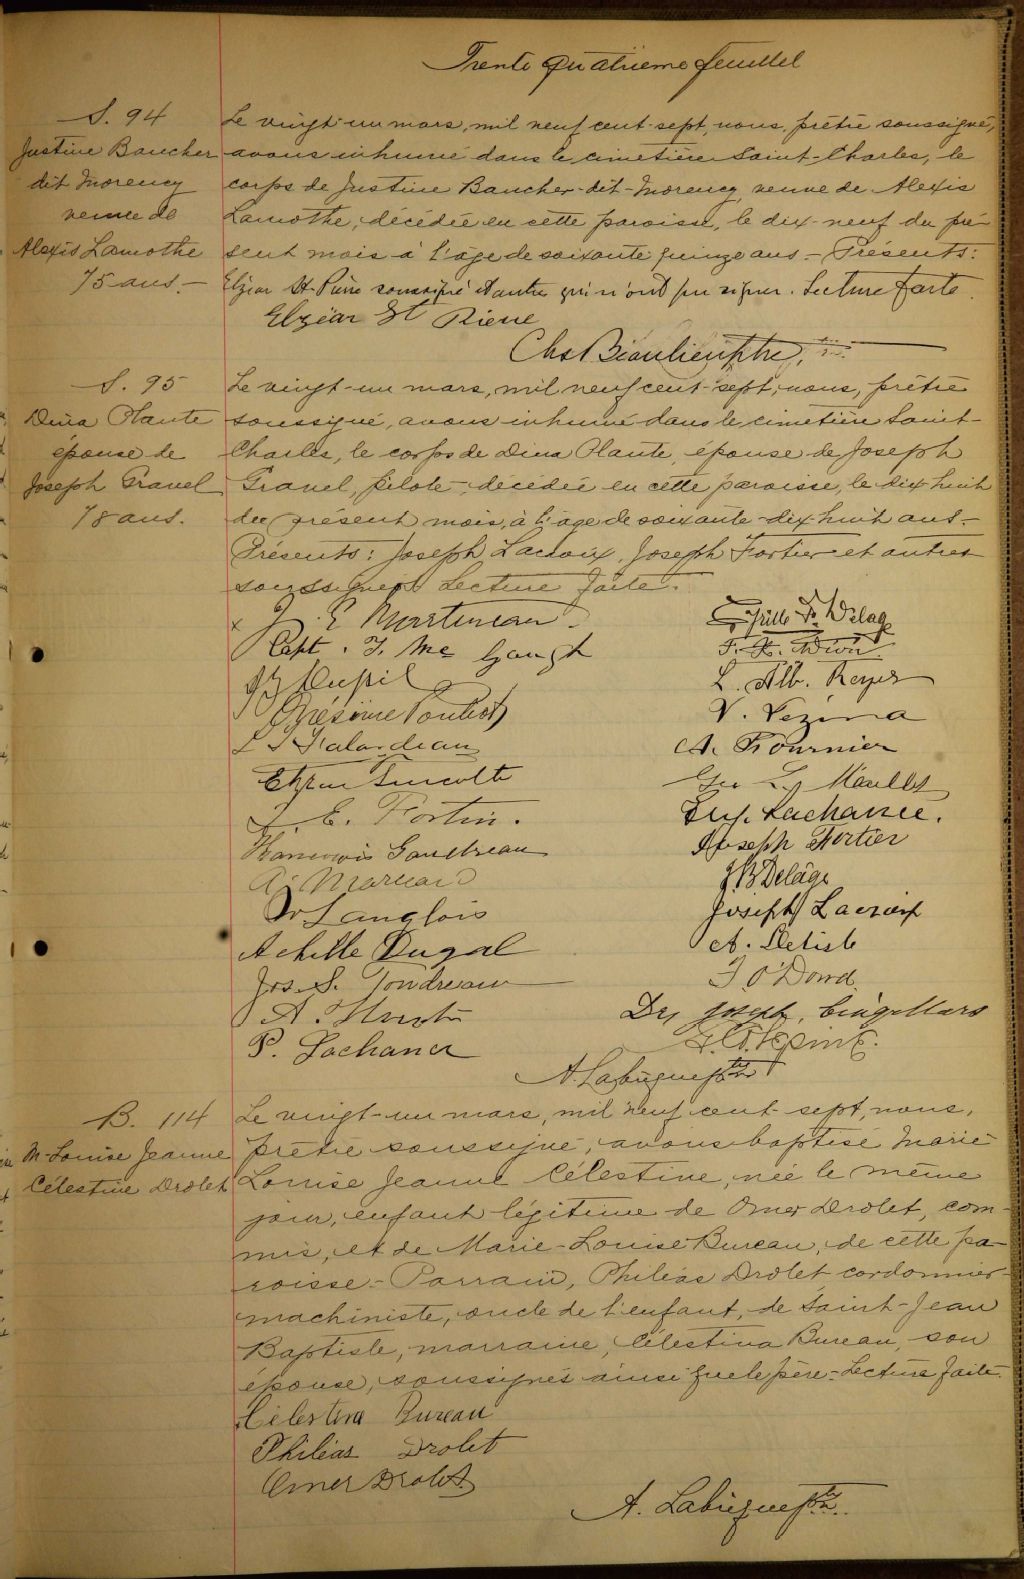 Trente quatrième feuillet
S. 94
Justine Baucher
dit Morency
veuve de
Alexis Lamothe
75 ans.-
Le vingt-un mars, mil neuf cent-sept, nous, prêtre soussigné,
avons inhumé dans le cimetière Saint-Charles, le
corps de Justine Baucher-dit-Morency, veuve de Alexis
Lamothe, décédée en cette paroisse, le dix-neuf du pré-
sent mois à l'âge de soixante quinze ans.- Présents:
Elzéar St Pierre soussigné et autres qui n'ont pu signer. Lecture faite.
Elzéar St Pierre
Chs Beaulieu ptre,
S. 95
Dina Plante
épouse de
Joseph Gravel
78 ans.
Le vingt-un mars, mil neuf cent-sept, nous, prêtre
soussigné, avons inhumé dans le cimetière Saint-
Charles, le corps de Dina Plante, épouse de Joseph
Gravel, pilote, décédée en cette paroisse, le dix huit
du présent mois, à l'âge de soixante-dix huit ans.-
Présents: Joseph Lacroix, Joseph Fortier et autres
soussignés Lecture faite.
J. E. Martineau.
Cyrille F. Delage
Capt. F. Mc Gough
Onésime Pouliot
L. Alb.
V. Vezina
A. Fournier
Elzear Turcotte
J. E. Fortin.
Eug. Lachance.
Francois Gaudreau
Joseph Fortier
J B Delâge
Langlois
Joseph Lacroix
Achille Dugal
A. Delisle
Jos. S.
F. O'Dowd
A.
Dr Joseph Cinq-Mars
P. Lachance
A. Labrecque ptre
B. 114
M-Louise Jeanne
Célestine Drolet
Le vingt-un mars, mil neuf cent-sept, nous,
prêtre soussigné, avons baptisé Marie
Louise Jeanne Célestine, née le même
jour, enfant légitime de Omer Drolet, com-
mis, et de Marie-Louise Bureau, de cette pa-
roisse.- Parrain, Philéas Drolet cordonnier-
machiniste, oncle de l'enfant, de Saint-Jean
Baptiste, marraine, Célestina Bureau, son
épouse, soussignés ainsi que le père.- Lecture faite.
Célestina Bureau
Philéas Drolet
Omer Drolet.
A. Labrecque ptre.